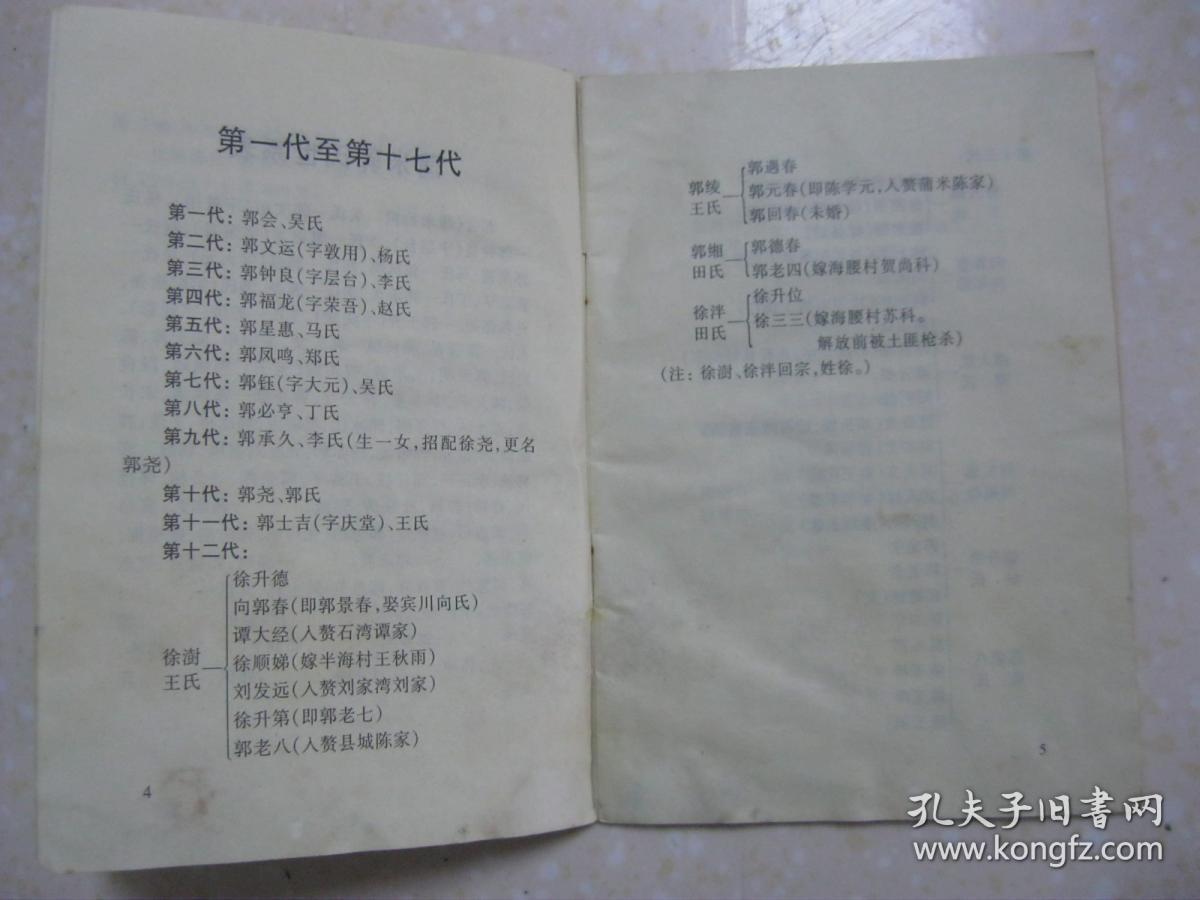 第一代至第十七代
第一代：郭会、吴氏
第二代：郭文运(字敦用)、杨氏
第三代：郭钟良(字层台)、李氏
第四代：郭福龙(字荣吾)、赵氏
第五代：郭星惠、马氏
第六代：郭凤鸣、郑氏
第七代：郭钰(字大元)、吴氏
第八代：郭必亨、丁氏
第九代：郭承久、李氏(生一女，招配徐尧，更名
郭尧)
第十代：郭尧、郭氏
第十一代：郭士吉(字庆堂)、王氏
第十二代：
徐澍
王氏
徐升德
向郭春(即郭景春，娶宾川向氏)
谭大经(入赘石湾谭家)
徐顺娣(嫁半海村王秋雨)
刘发远(入赘刘家湾刘家)
徐升第(即郭老七)
郭老八(入赘县城陈家)
4
郭绫
王氏
郭遇春
郭元春(即陈学元，入赘蒲米陈家)
郭回春(未婚)
郭缃
田氏
郭德春
郭老四(嫁海腰村贺尚科)
徐泮
田氏
徐升位
徐三三(嫁海腰村苏科。
解放前被土匪枪杀)
(注：徐澍、徐泮回宗，姓徐。)
5
孔夫子旧书网
www.kongfz.com